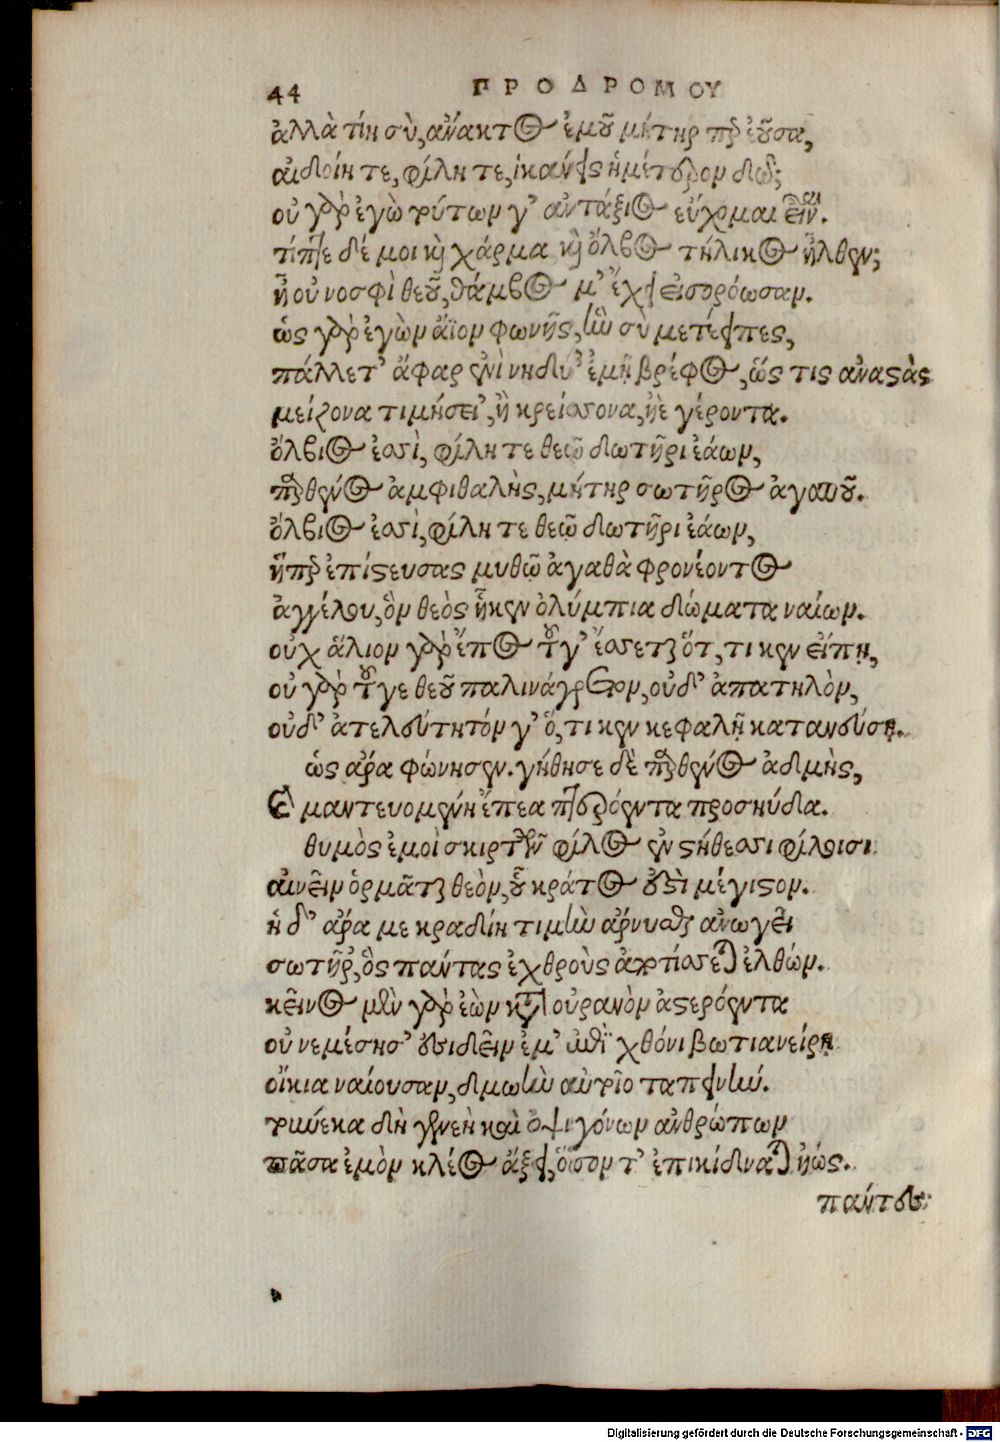 44 ΠΡΟΔΡΟΜΟΥ
ἀλλὰ τίη σὺ, ἄνακτος ἐμοῦ μήτηρ περ ἐοῦσα,
αἰδοίη τε, φίλη τε, ἱκάνεις ἡμέτερον δῶ;
οὐ γὰρ ἐγὼ τύτων γ' ἀντάξιος εὔχομαι εἶναι.
τίπτε δέ μοι καὶ χάρμα καὶ ὄλβος τηλίκος ἦλθεν;
ἦ οὐ νοσφὶ θεοῦ, θάμβος μ' ἔχει εἰσορόωσαν.
ὡς γὰρ ἐγὼν ἄϊον φωνῆς, ἣν σὺ μετέειπες,
πάλλετ' ἄφαρ ἐνὶ νηδύϊ ἐμῇ βρέφος, ὥς τις ἀναστὰς
μείζονα τιμήσει', ἢ κρείσσονα, ἠὲ γέροντα.
ὄλβιος ἐσσὶ, φίλη τε θεῷ δωτῆρι ἐάων,
παρθένος ἀμφιθαλὴς, μήτηρ σωτῆρος ἀγαυοῦ.
ὄλβιος ἐσσὶ, φίλη τε θεῷ δωτῆρι ἐάων,
ἥπερ ἐπίστευσας μυθῷ ἀγαθὰ φρονέοντος
ἀγγέλου, ὃν θεὸς ἧκεν ὀλύμπια δώματα ναίων.
οὐχ ἅλιον γὰρ ἔπος τοῦγ' ἔσσεται ὅτ, τι κεν εἴπῃ,
οὐ γὰρ τοῦγε θεοῦ παλινάγρετον, οὐδ' ἀπατηλὸν,
οὐδ' ἀτελεύτητόν γ' ὅ, τι κεν κεφαλῇ κατανεύσῃ.
ὡς ἄρα φώνησεν. γήθησε δὲ παρθένος ἀδμὴς,
Καὶ μαντευομένη ἔπεα πτερόεντα προσηύδα.
θυμὸς ἐμοὶ σκιρτᾶν φίλος ἐν στήθεσσι φίλοισι
αἰνεῖν ὁρμᾶται θεὸν, οὗ κράτος ἐστὶ μέγιστον.
ἡ δ' ἄρα με κραδίη τιμὴν ἄρνυσθαι ἀνωγεῖ
σωτῆρ, ὃς πάντας ἐχθροὺς ἀρτίσεται ἐλθών.
κεῖνος μὲν γὰρ ἐὼν κατ' οὐρανὸν ἀστερόεντα
οὐ νεμέσησ' ἐπιδεῖν ἔμ' ἐπὶ χθόνι βωτιανείρῃ
οἴκια ναίουσαν, δμωὴν αὑτῖο ταπεινήν.
τούνεκα δὴ γενεὴ καὶ ὀψιγόνων ἀνθρώπων
πᾶσα ἐμὸν κλέος ἄξει, ὅσον τ' ἐπικίδναται ἠώς.
πάντες
Digitalisierung gefördert durch die Deutsche Forschungsgemeinschaft - DFG